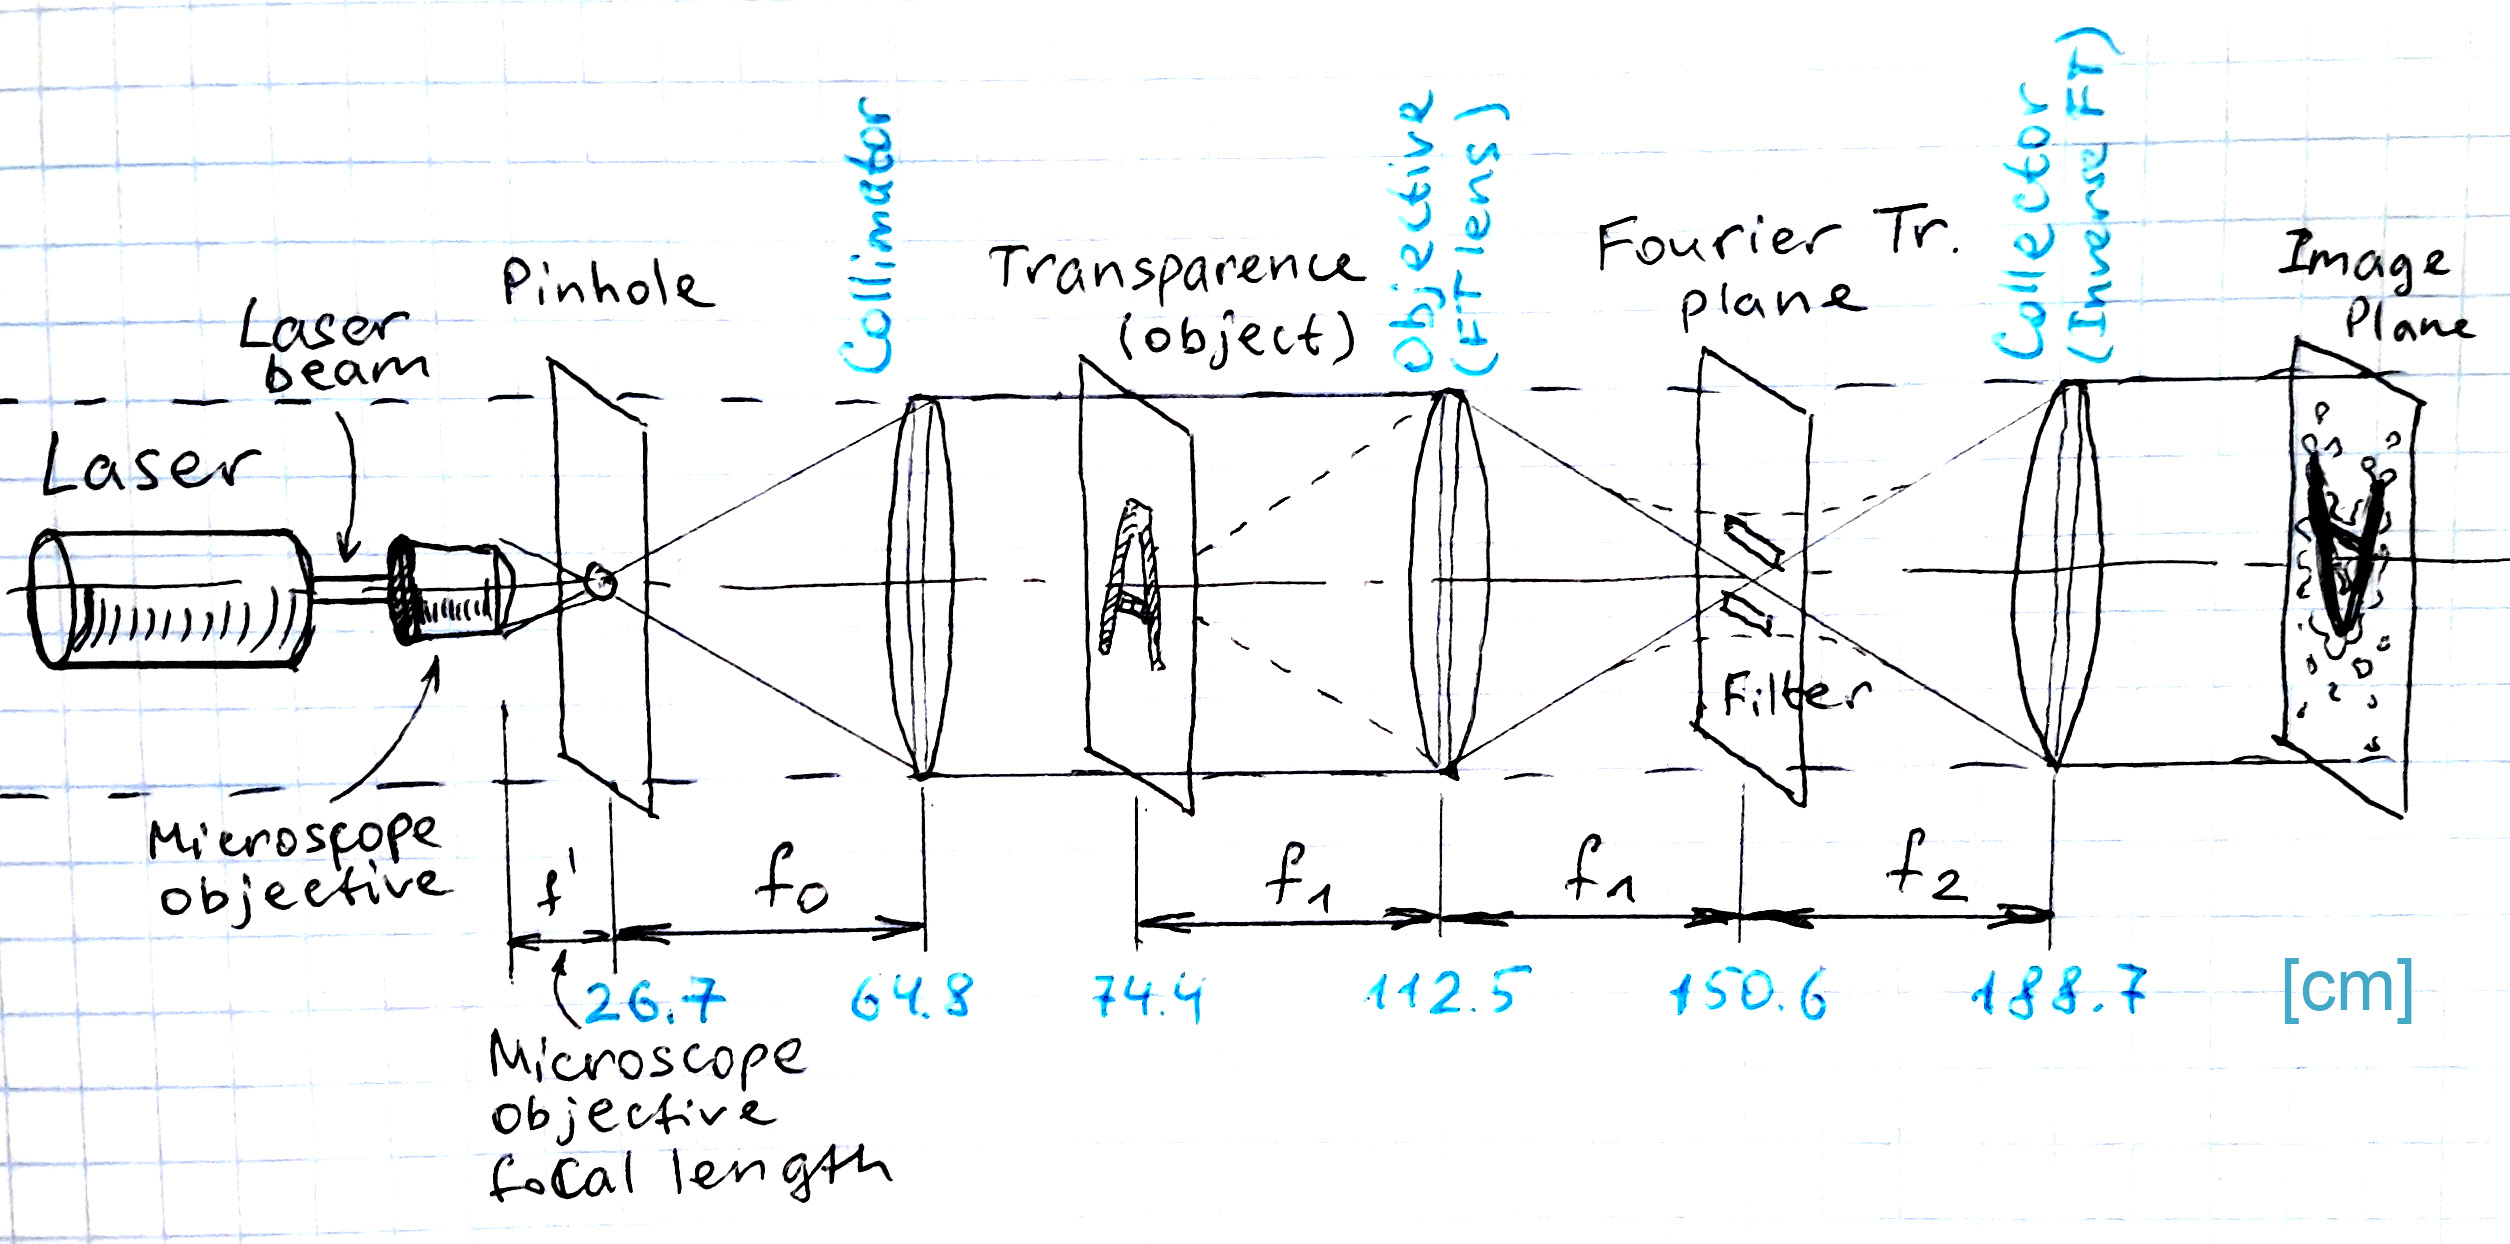 Collimator
Objective
(FT lens)
Collector
(Inverse FT)
Laser
beam
Pinhole
Transparence
(object)
Fourier Tr.
plane
Image
Plane
Laser
Filter
Microscope
objective
f'
f0
f1
f1
f2
26.7
64.8
74.4
112.5
150.6
188.7
[cm]
Microscope
objective
focal length